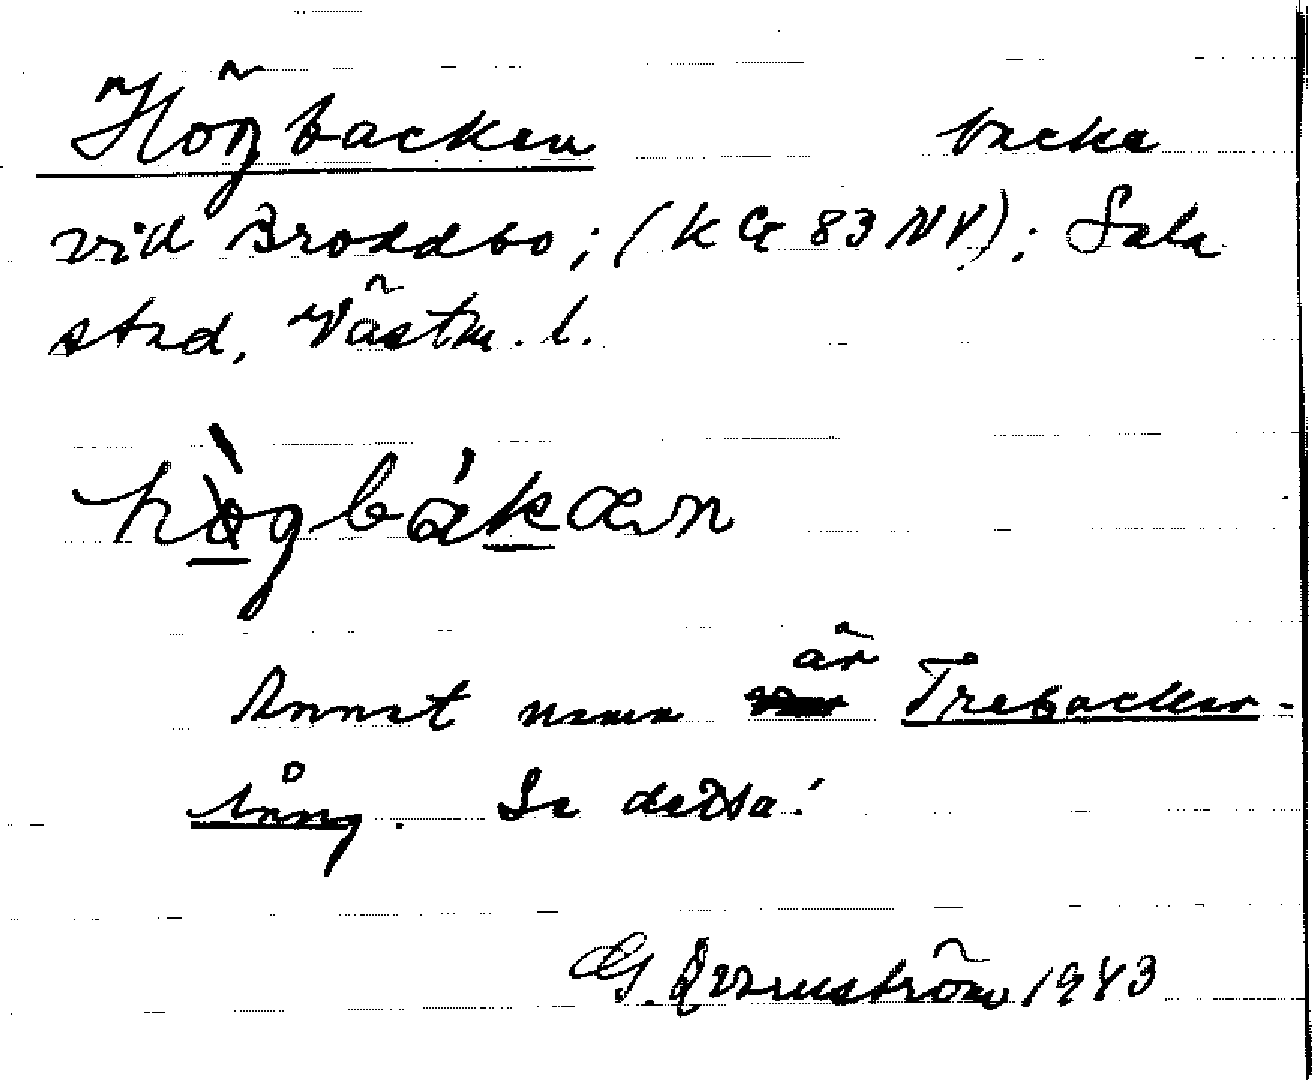 Högbacken backe
vid Broddbo; (KG 83 NV); Sala
stad, Västm. l.
hògbákæn
Annat namn är Trebackar-
lång. Se detta!
G. Qvarnström 1943